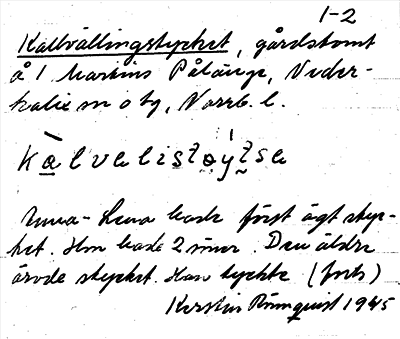 1-2
Kallvällingstycket, gårdstomt
å 1 Markus Pålänge, Neder-
kalix sn o tg, Norrb. l.
kalvelistoytse
Anna-Lena hade först ägt styc-
ket. Hon hade 2 söner. Den äldre
ärvde stycket. Han tyckte (forts)
Kerstin Rönnquist 1945